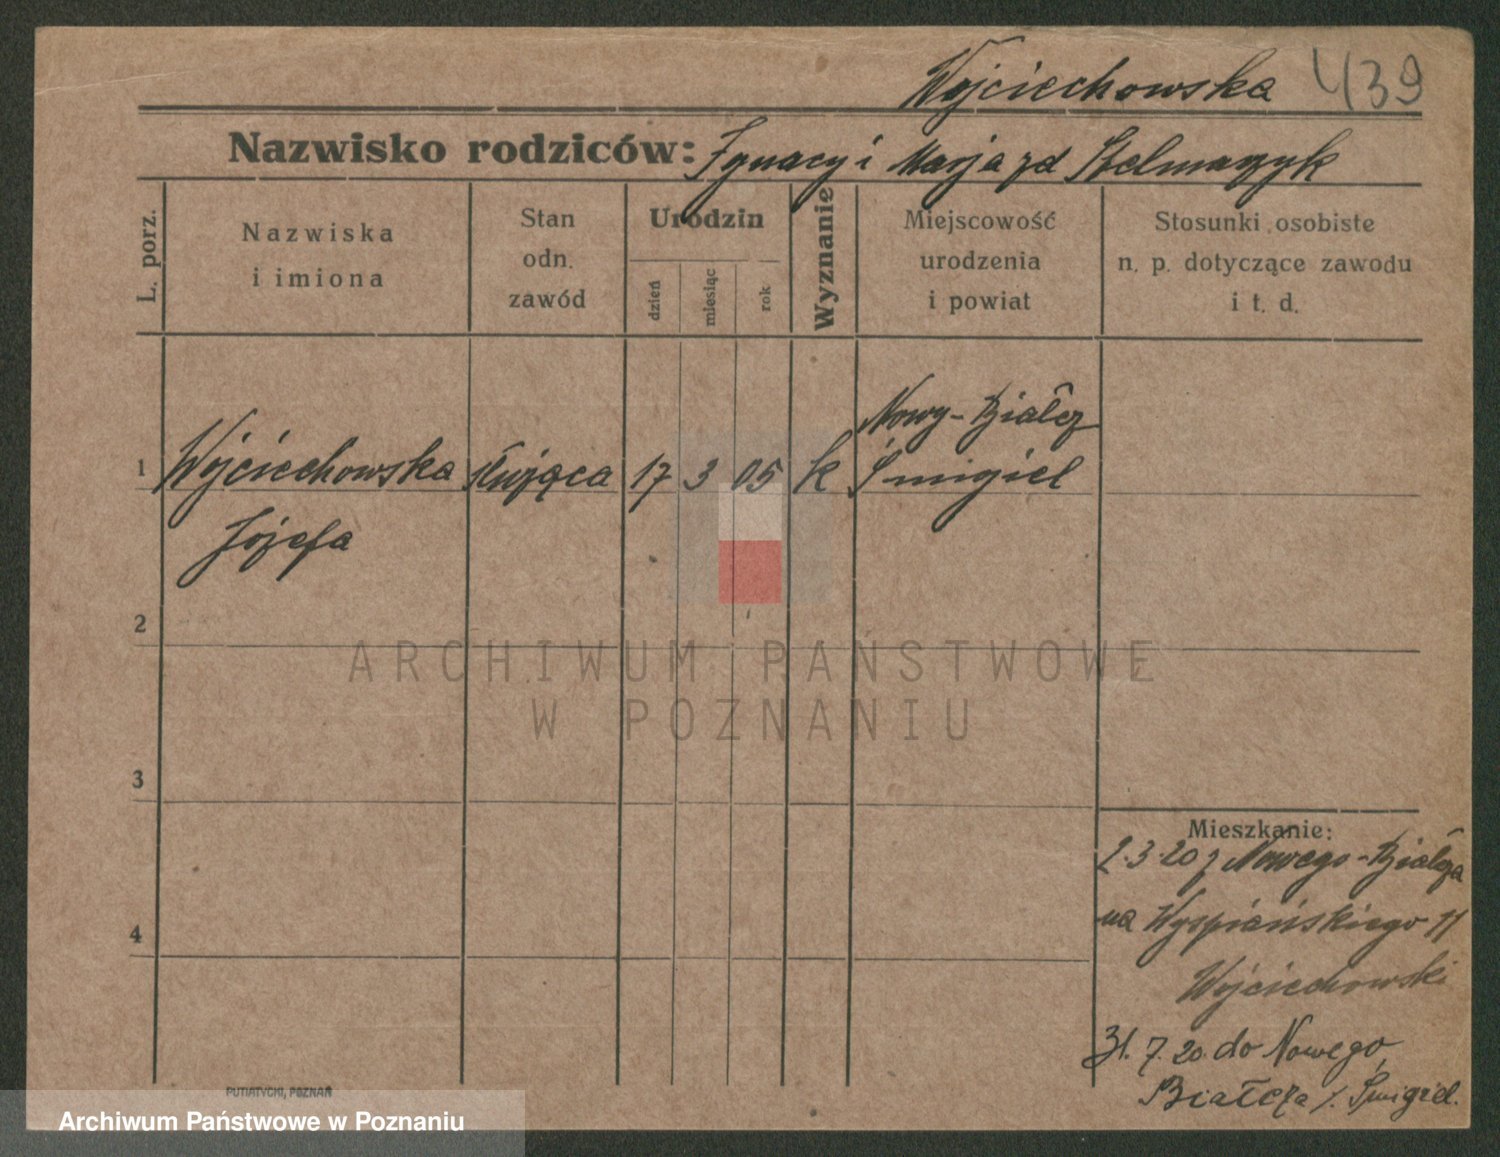 Wojciechowska 439
Nazwisko rodziców: Ignacy i Marja zd Stelmaszyk
L. porz.
Nazwiska
i imiona
Stan
odn.
zawód
Urodzin
dzień
miesiąc
rok
Wyznanie
Miejscowość
urodzenia
i powiat
Stosunki osobiste
n. p. dotyczące zawodu
i t. d.
Nowy-Białcz
1 Wojciechowska służąca 17 3 05 k Śmigiel
Józefa
2
ARCHIWUM PAŃSTWOWE
W POZNANIU
3
Mieszkanie:
2.3.20 z Nowego-Białcza
4
na Wyspiańskiego 11
Wojciechowski
31.7.20 do Nowego
Białcza /. Śmigiel.
PUTIATYCKI, POZNAŃ
Archiwum Państwowe w Poznaniu